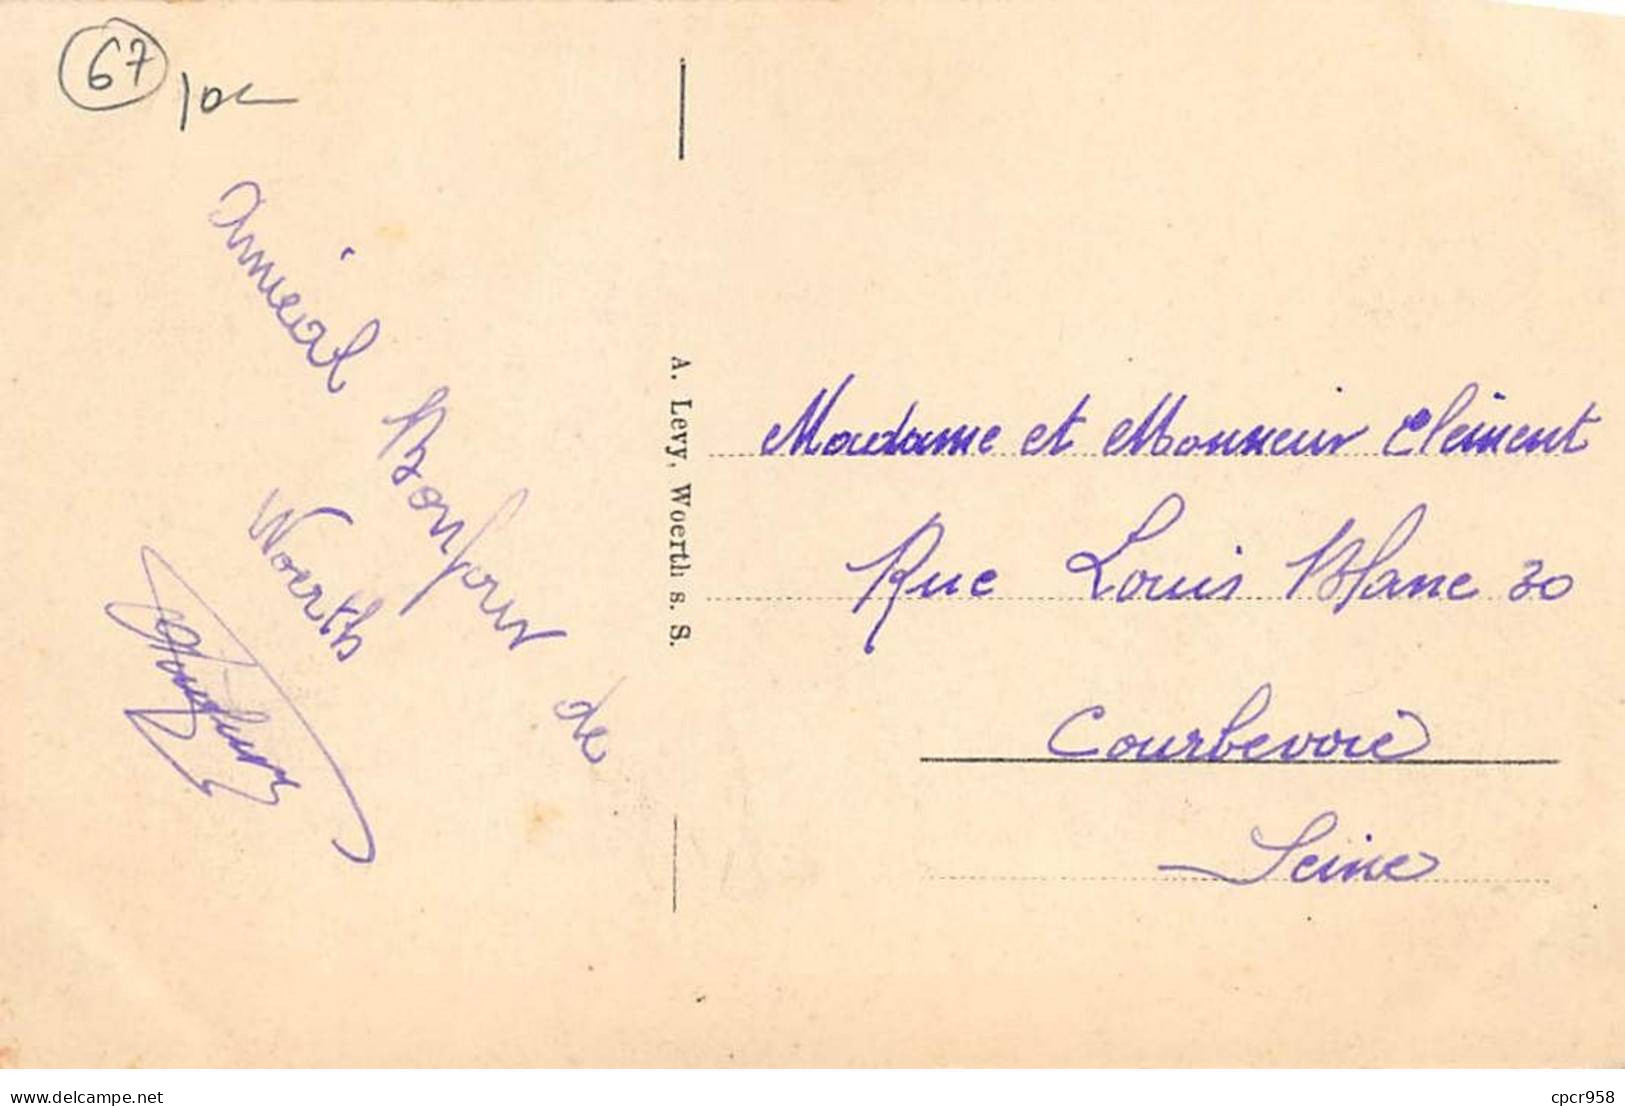 67
Amical Bonjour de
Woerth
A. Levy, Woerth s. S.
Madame et Monsieur Clément
Rue Louis Blanc 30
Courbevoie
Seine
delcampe.net
cpcr958